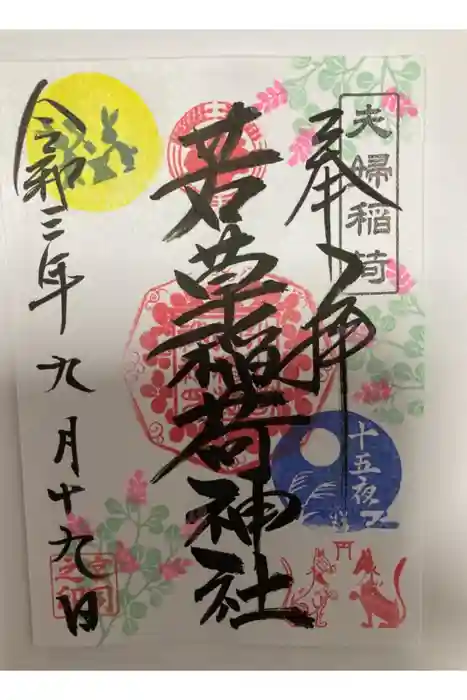 夫婦稲荷
奉拝
十五夜
若草稲荷神社
令和三年九月十九日